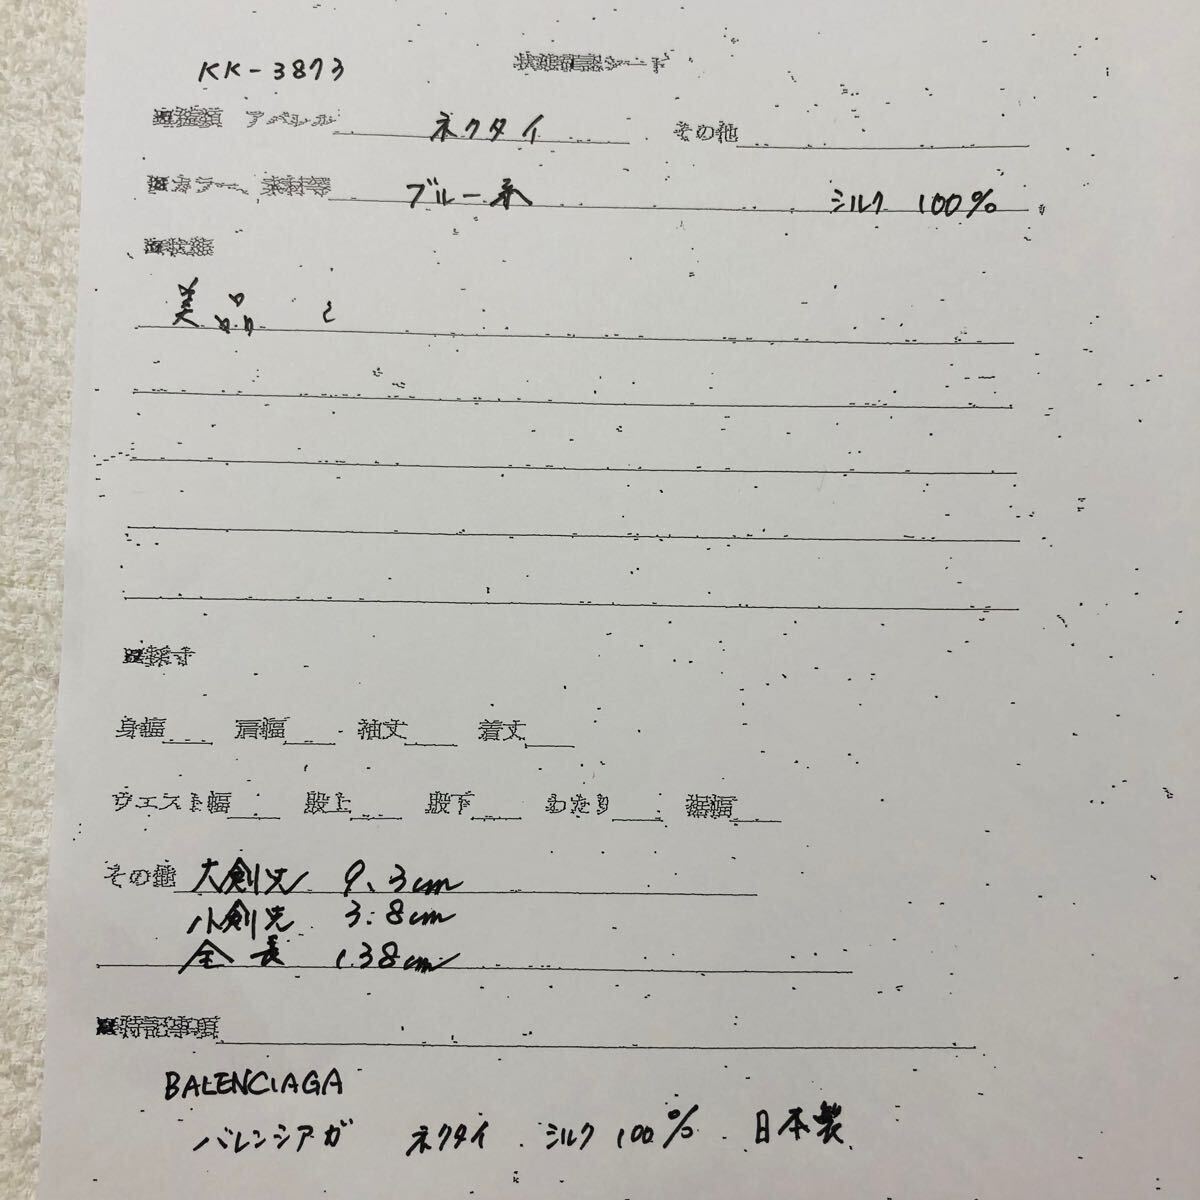 KK-3873
状態確認シート
■種類 アパレル ネクタイ その他
■カラー、素材等 ブルー系 シルク 100%
■状態
美品
■採寸
身幅 肩幅 袖丈 着丈
ウエスト幅 股上 股下 わたり 裾幅
その他 大剣先 9.3cm
小剣先 3.8cm
全長 138cm
■特記事項
BALENCIAGA
バレンシアガ ネクタイ . シルク 100% . 日本製